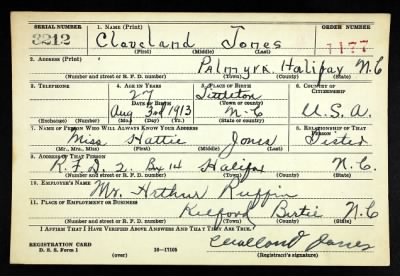 SERIAL NUMBER 1. NAME (Print) ORDER NUMBER
3212 Claveland Jones 1177
(First) (Middle) (Last)
2. ADDRESS (Print)
Palmyra Halifax N.C
(Number and street or R. F. D. number) (Town) (County) (State)
3. TELEPHONE 4. AGE IN YEARS 5. PLACE OF BIRTH 6. COUNTRY OF CITIZENSHIP
27 Littleton
DATE OF BIRTH (Town or county)
Aug 3rd 1913 N-C U.S.A.
(Exchange) (Number) (Mo.) (Day) (Yr.) (State or country)
7. NAME OF PERSON WHO WILL ALWAYS KNOW YOUR ADDRESS 8. RELATIONSHIP OF THAT PERSON
Miss Hattie Jones Sister
(Mr., Mrs., Miss) (First) (Middle) (Last)
9. ADDRESS OF THAT PERSON
R.F.D 2, Box 14 Halifax N.C.
(Number and street or R. F. D. number) (Town) (County) (State)
10. EMPLOYER'S NAME
Mr. Arthur Ruffin
11. PLACE OF EMPLOYMENT OR BUSINESS
Kelford Bertie N.C
(Number and street or R. F. D. number) (Town) (County) (State)
I AFFIRM THAT I HAVE VERIFIED ABOVE ANSWERS AND THAT THEY ARE TRUE.
Jones
REGISTRATION CARD
D. S. S. Form 1 16-17105 (Registrant's signature)
(over)